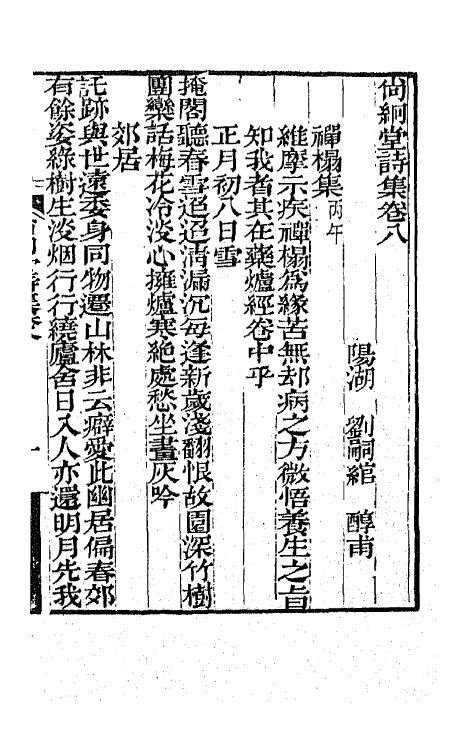 尙絅堂詩集卷八
陽湖 劉嗣綰 醇甫
禪榻集丙午
維摩示疾禪榻爲緣苦無却病之方微悟養生之旨
知我者其在藥爐經卷中乎
正月初八日雪
掩閣聽春雪迢迢淸漏沉每逢新歲淺翻恨故園深竹樹
團欒話梅花冷淡心擁爐寒絶處愁坐畫灰吟
郊居
託跡與世遠委身同物遷山林非云癖愛此幽居偏春郊
有餘姿綠樹生淡烟行行繞廬舍日入人亦還明月先我
一